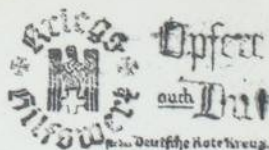 Kriegs
Hilfswerk
Opfere
auch Du
Deutsche Rote Kreuz